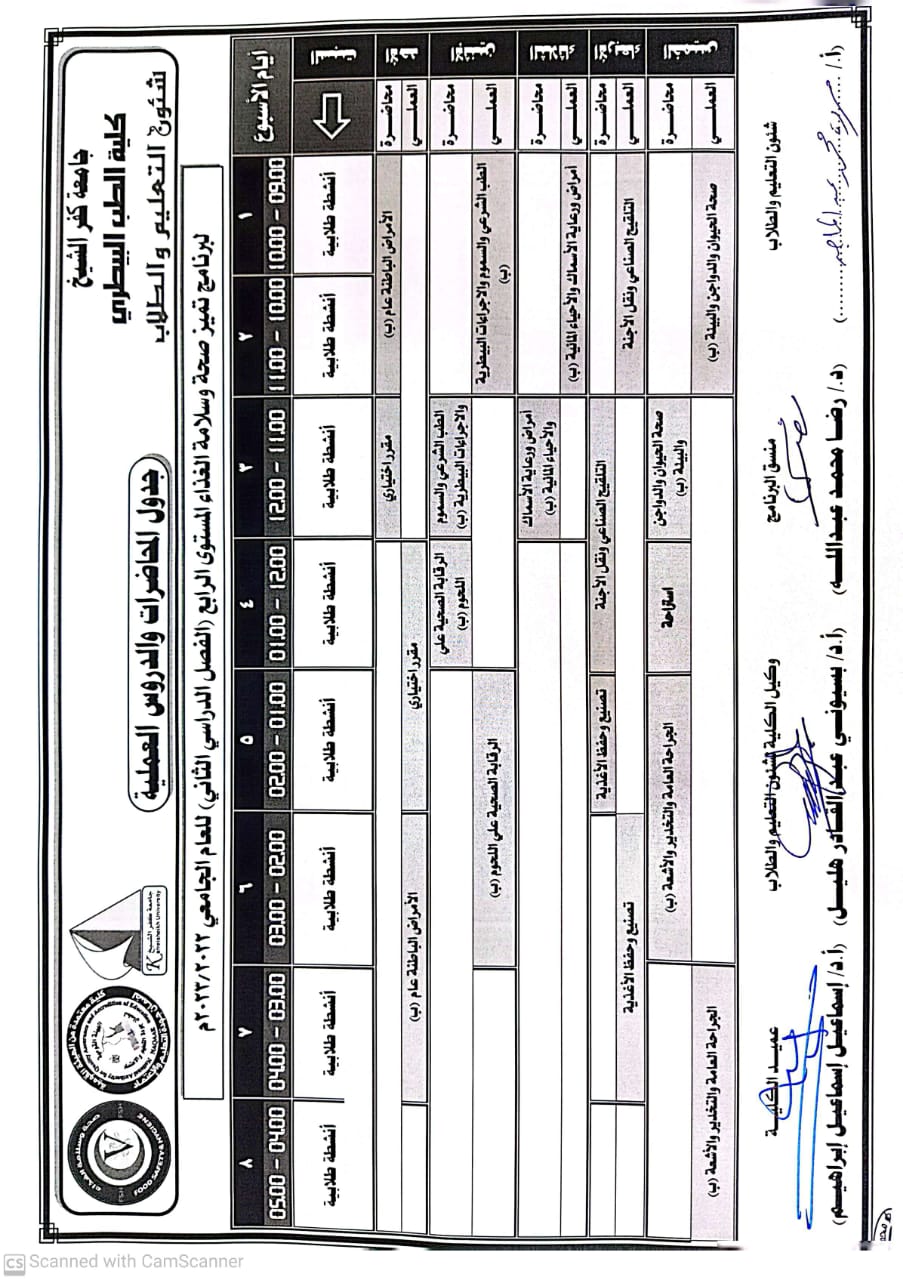 جامعة كفر الشيخ
كلية الطب البيطري
شئون التعليم والطلاب
جدول المحاضرات والدروس العملية
جامعة كفر الشيخ
Kafrelsheikh University
صحة وسلامة الغذاء
FSH
FSH
FOOD SAFETY&HYGIENE
لبرنامج تميز صحة وسلامة الغذاء المستوى الرابع (الفصل الدراسي الثاني) للعام الجامعي ٢٠٢٣/٢٠٢٢م
أيام الأسبوع
١ ٢ ٣ ٤ ٥ ٦ ٧ ٨
10.00 - 09.00 11.00 - 10.00 12.00 - 11.00 01.00 - 12.00 02.00 - 01.00 03.00 - 02.00 04.00 - 03.00 05.00 - 04.00
السبت
أنشطة طلابية أنشطة طلابية أنشطة طلابية أنشطة طلابية أنشطة طلابية أنشطة طلابية أنشطة طلابية أنشطة طلابية
الأحد
محاضرة الأمراض الباطنة عام (ب) مقرر اختياري
العملي مقرر اختياري الأمراض الباطنة عام (ب)
الإثنين
محاضرة الطب الشرعي والسموم والاجراءات البيطرية (ب) الرقابة الصحية علي اللحوم (ب)
العملي الطب الشرعي والسموم والاجراءات البيطرية (ب) الرقابة الصحية علي اللحوم (ب)
الثلاثاء
محاضرة أمراض ورعاية الأسماك والأحياء المائية (ب)
العملي أمراض ورعاية الأسماك والأحياء المائية (ب)
الأربعاء
محاضرة التلقيح الصناعي ونقل الأجنة تصنيع وحفظ الأغذية
العملي التلقيح الصناعي ونقل الأجنة تصنيع وحفظ الأغذية
الخميس
محاضرة صحة الحيوان والدواجن والبيئة (ب) استراحة الجراحة العامة والتخدير والأشعة (ب)
العملي صحة الحيوان والدواجن والبيئة (ب) الجراحة العامة والتخدير والأشعة (ب)
شئون التعليم والطلاب منسق البرنامج وكيل الكلية لشئون التعليم والطلاب عميد الكلية
(أ./ (د./ رضا محمد عبدالله) (أ.د/ بسيوني عبدالقادر هليل) (أ.د/ إسماعيل إسماعيل إبراهيم)
CS Scanned with CamScanner